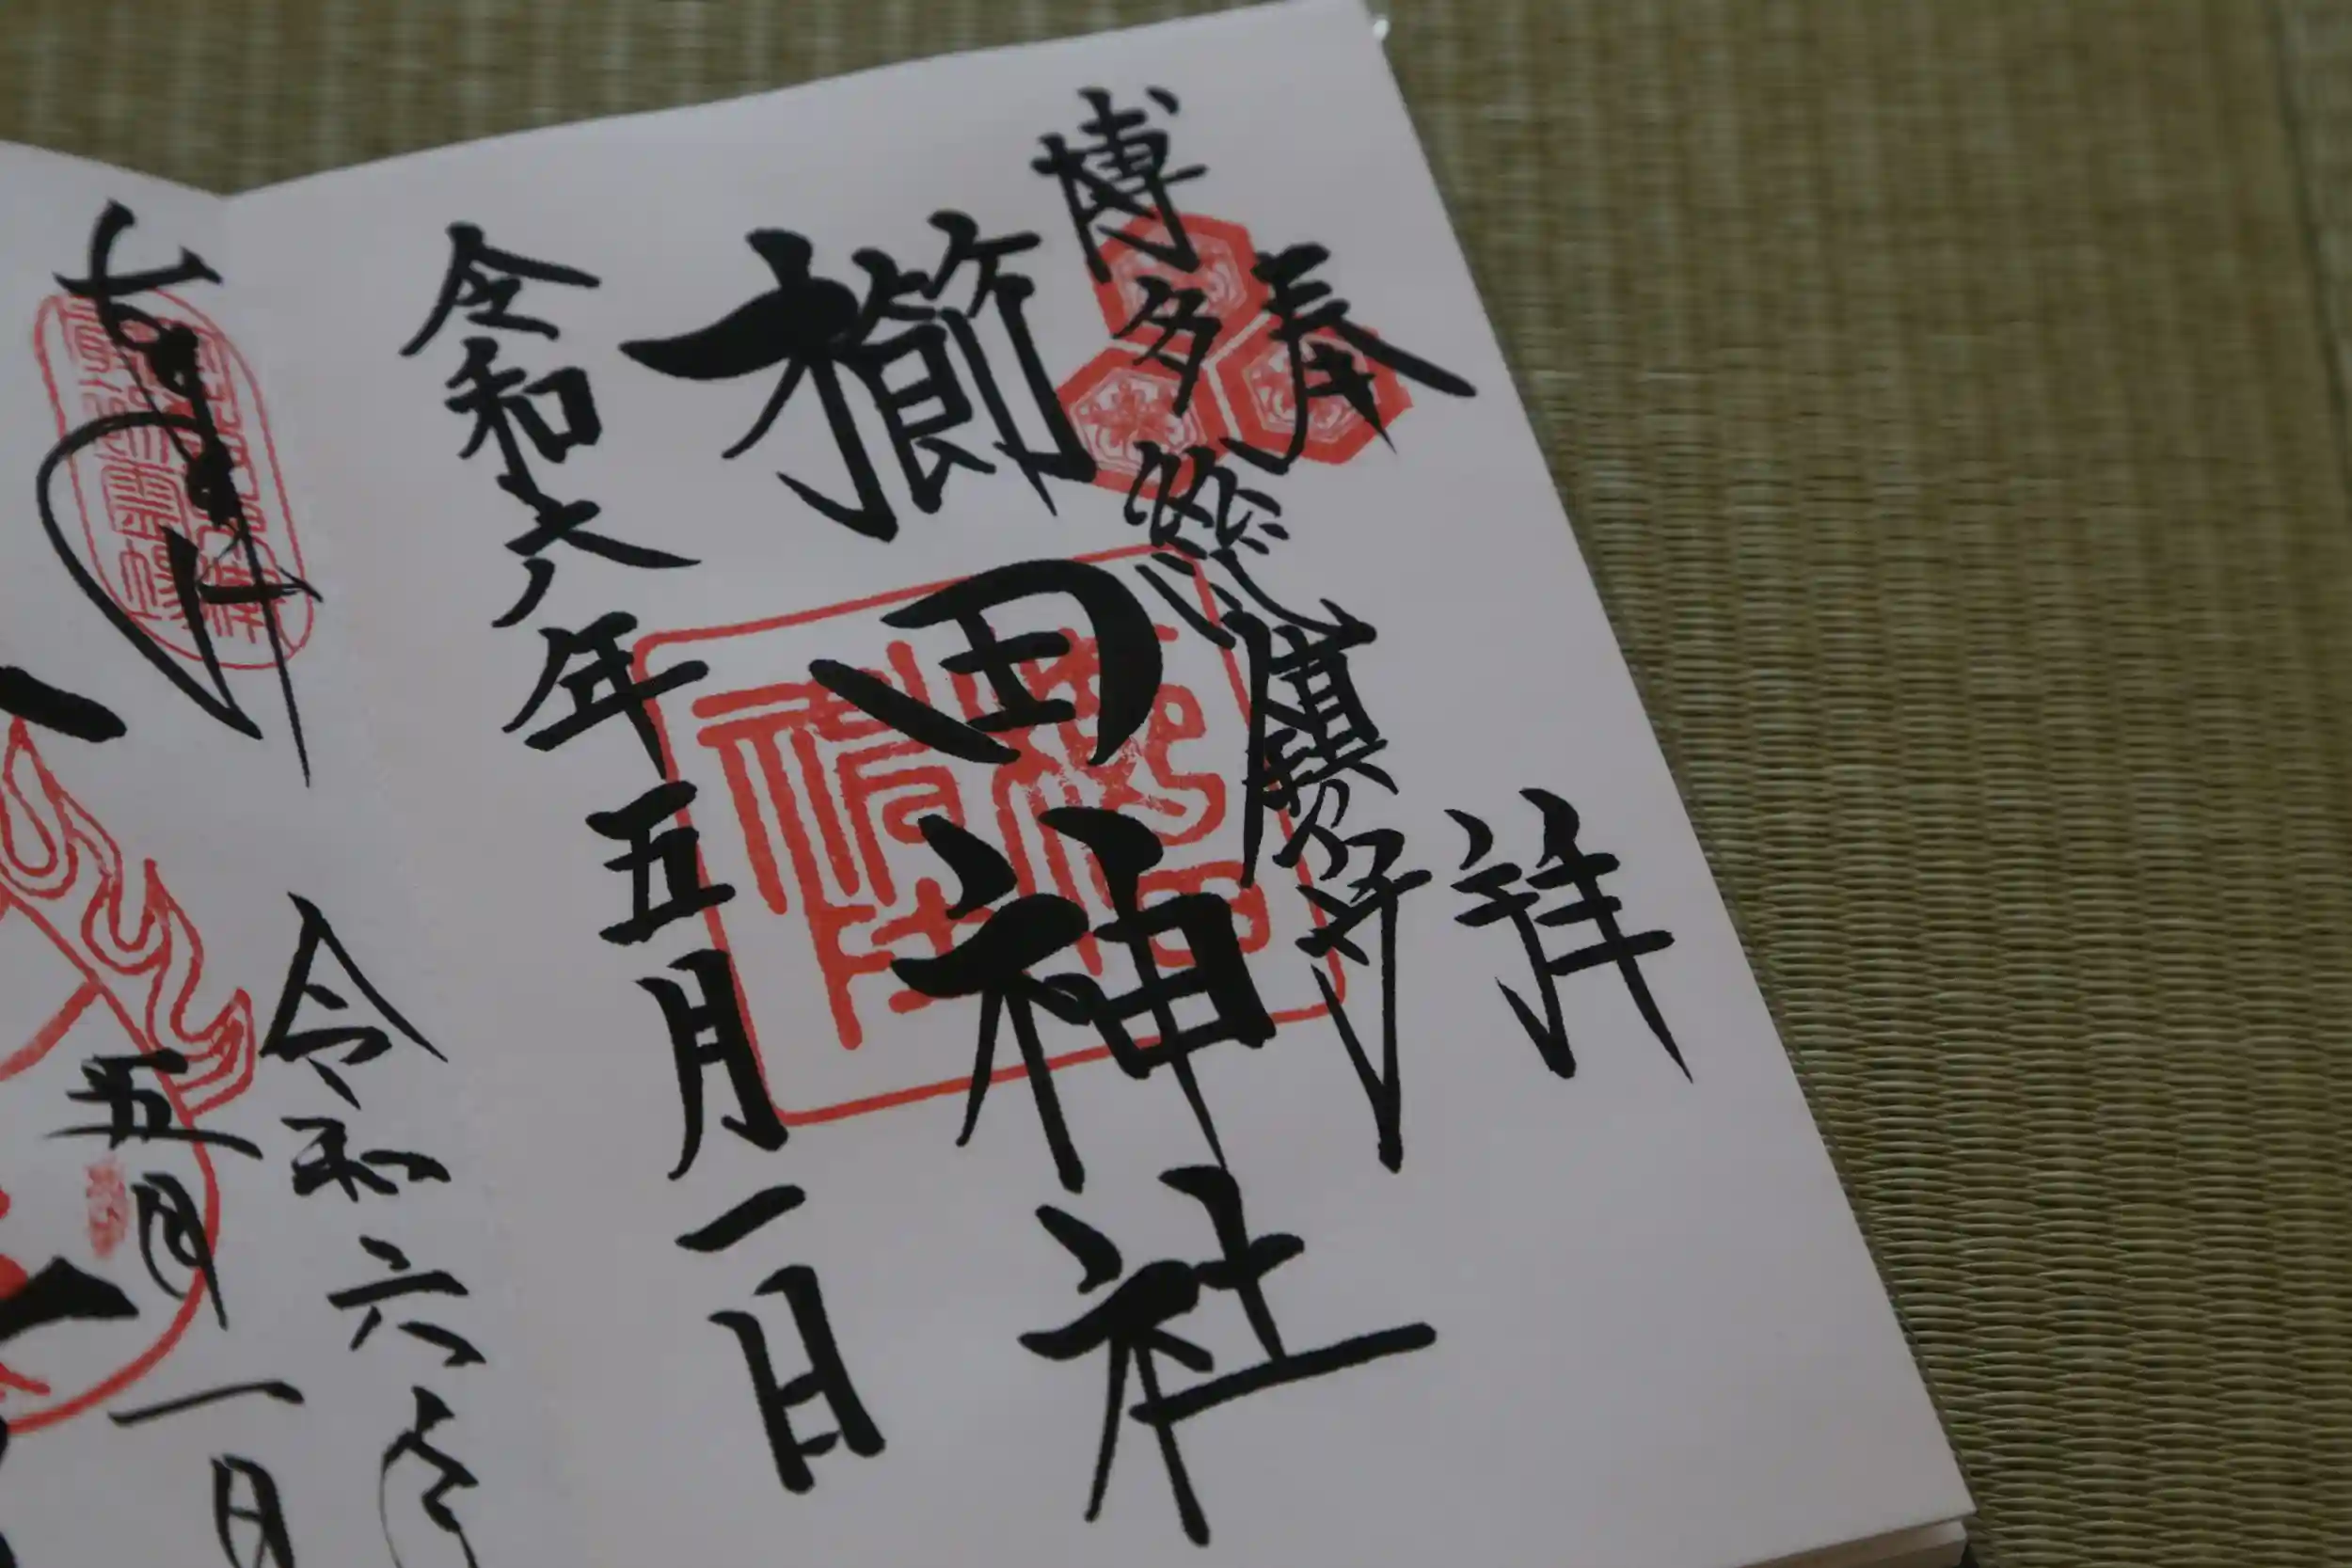 奉拝
博多総鎮守
櫛田神社
令和六年五月一日
奉拝
令和六年
五月一日